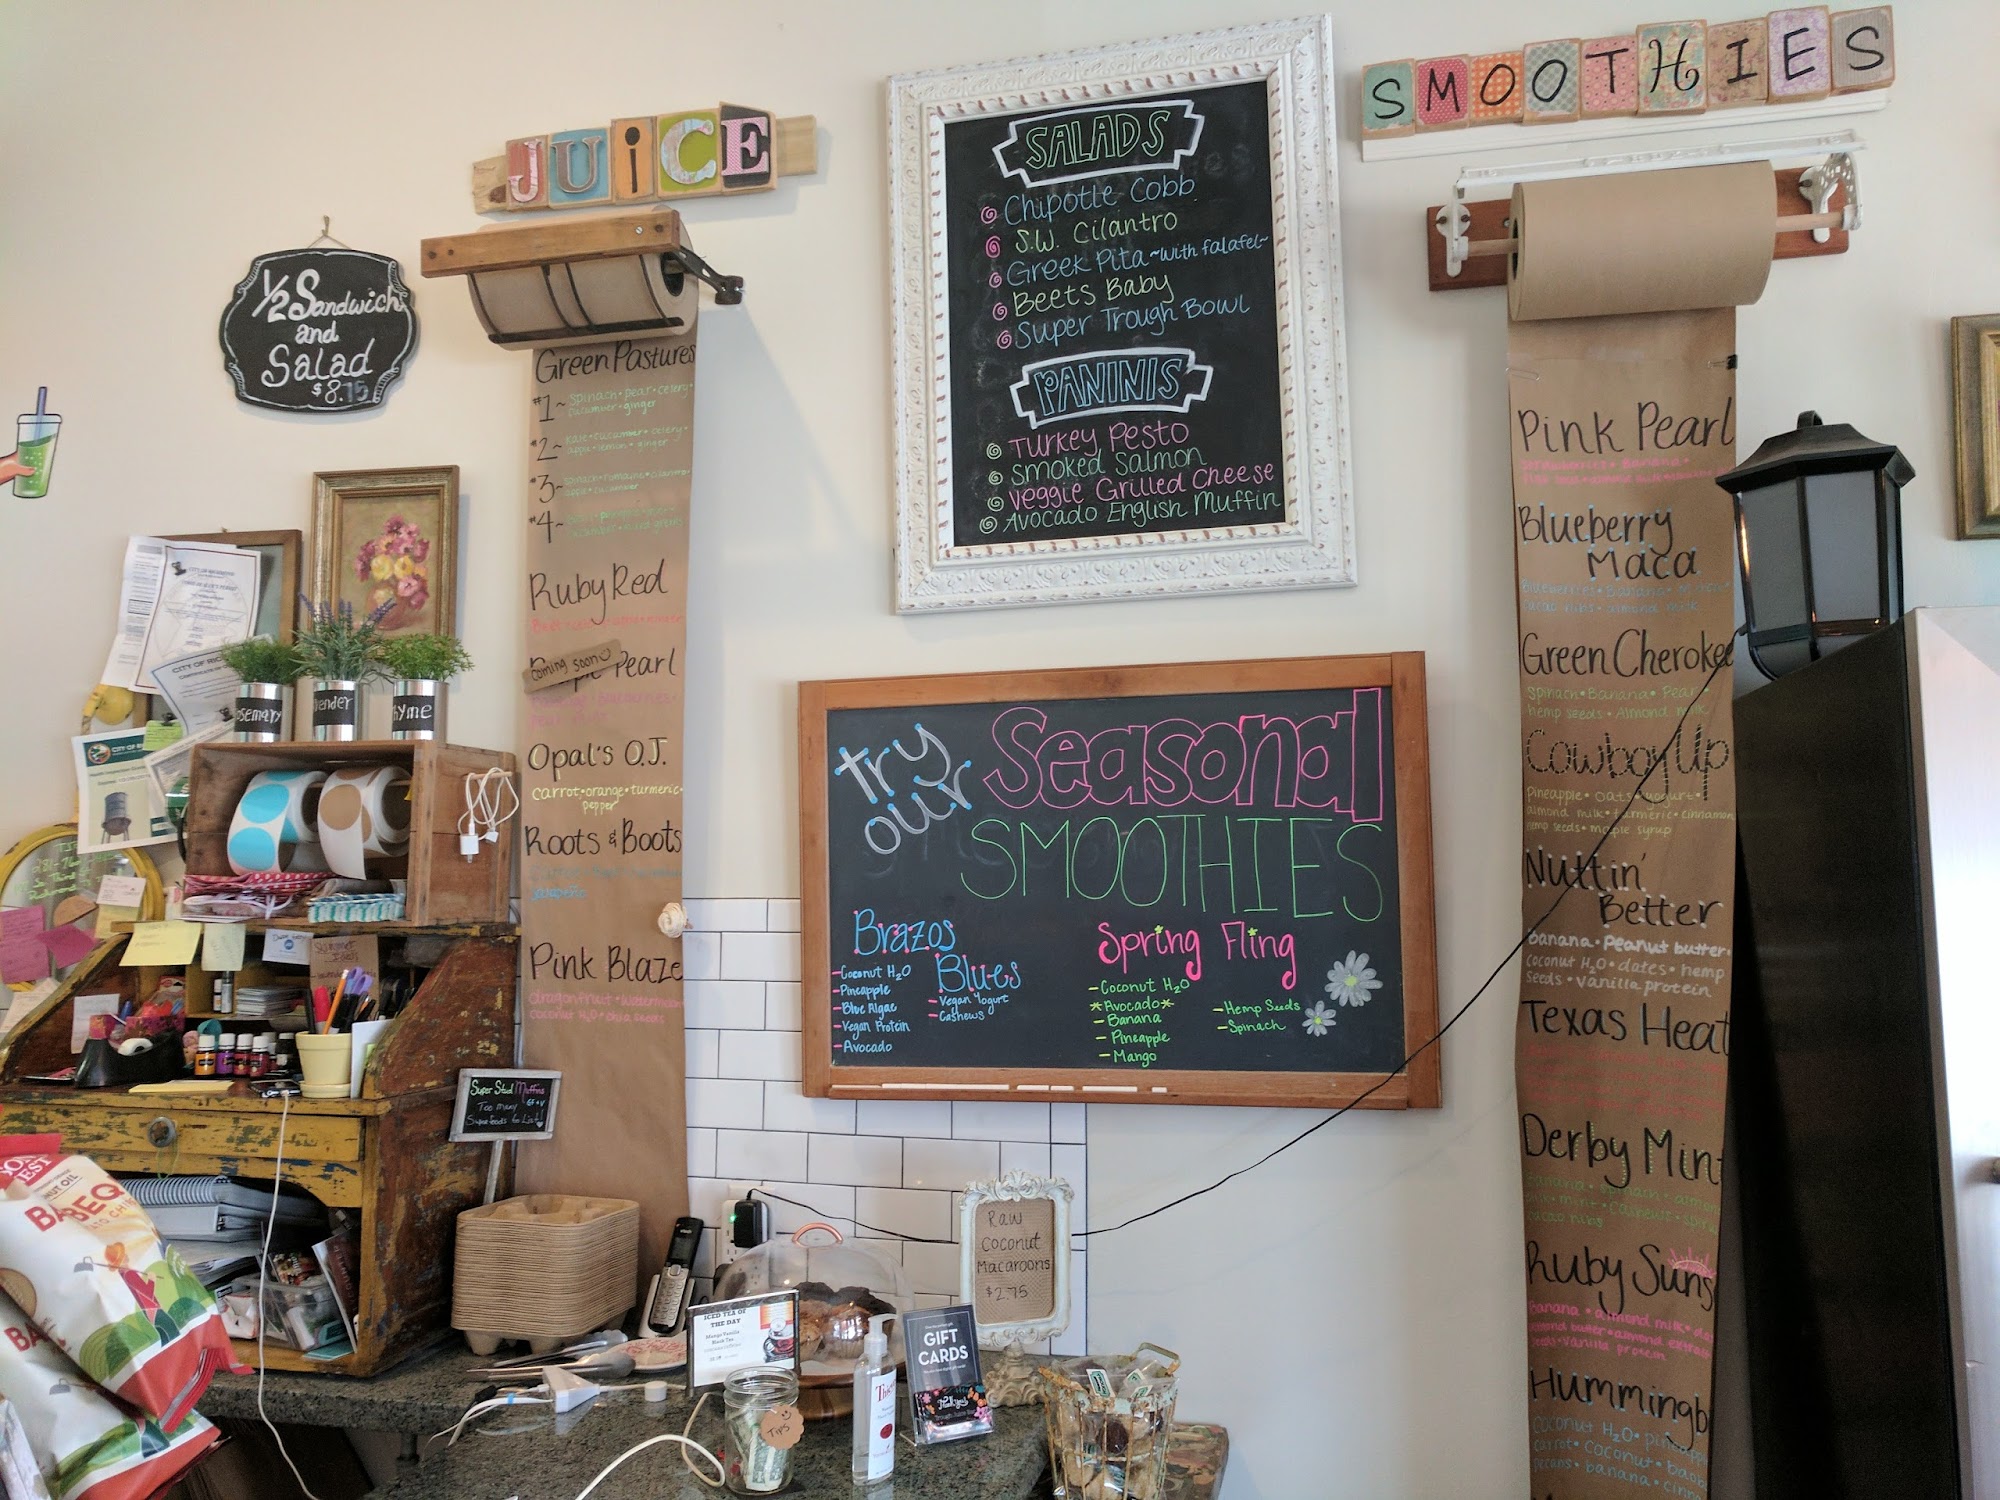 JUiCE
SMOOTHIES
1/2 Sandwich
and
Salad
$8.75
SALADS
Chipotle Cobb
S.W. Cilantro
Greek Pita ~with falafel~
Beets Baby
Super Trough Bowl
PANINIS
Turkey Pesto
Smoked Salmon
Veggie Grilled Cheese
Avocado English Muffin
Green Pastures
#1~ spinach • pear • celery •
cucumber • ginger
#2~ kale • cucumber • celery •
apple • lemon • ginger
#3~ spinach • romaine • cilantro •
apple • cucumber
#4~
Ruby Red
Coming soon
Pearl
Opal's O.J.
carrot • orange • turmeric •
pepper
Roots & Boots
jalapeño
Pink Blaze
dragonfruit • watermelon
coconut H2O • chia seeds
try
our
Seasonal
SMOOTHIES
Brazos
Blues
- Coconut H2O
- Pineapple
- Blue Algae
- Vegan Protein
- Avocado
- Vegan Yogurt
- Cashews
Spring Fling
- Coconut H2O
*Avocado*
- Banana
- Pineapple
- Mango
- Hemp Seeds
- Spinach
Pink Pearl
strawberries • Banana •
Blueberry
Maca
Blueberries • Banana •
cacao nibs • almond milk
Green Cherokee
Spinach • Banana • Pear •
hemp seeds • Almond milk
Cowboy Up
Pineapple • oats • yogurt •
almond milk • turmeric • cinnamon
hemp seeds • maple syrup
Nuttin'
Better
Banana • Peanut butter •
coconut H2O • dates • hemp
seeds • vanilla protein
Texas Heat
Derby Mint
Banana • spinach •
milk • mint • cashews •
cacao nibs
Ruby Suns
Banana • almond milk •
almond butter • almond extract
seeds • Vanilla protein
Hummingb
Coconut H2O •
carrot • coconut •
pecans • banana •
rosemary
thyme
CITY OF
Super Stud Muffins
GF + V
Too many
Superfoods to List!
Raw
Coconut
Macaroons
$2.75
ICED TEA OF
THE DAY
Mango Vanilla
Black Tea
GIFT
CARDS
Thank you
TIPS